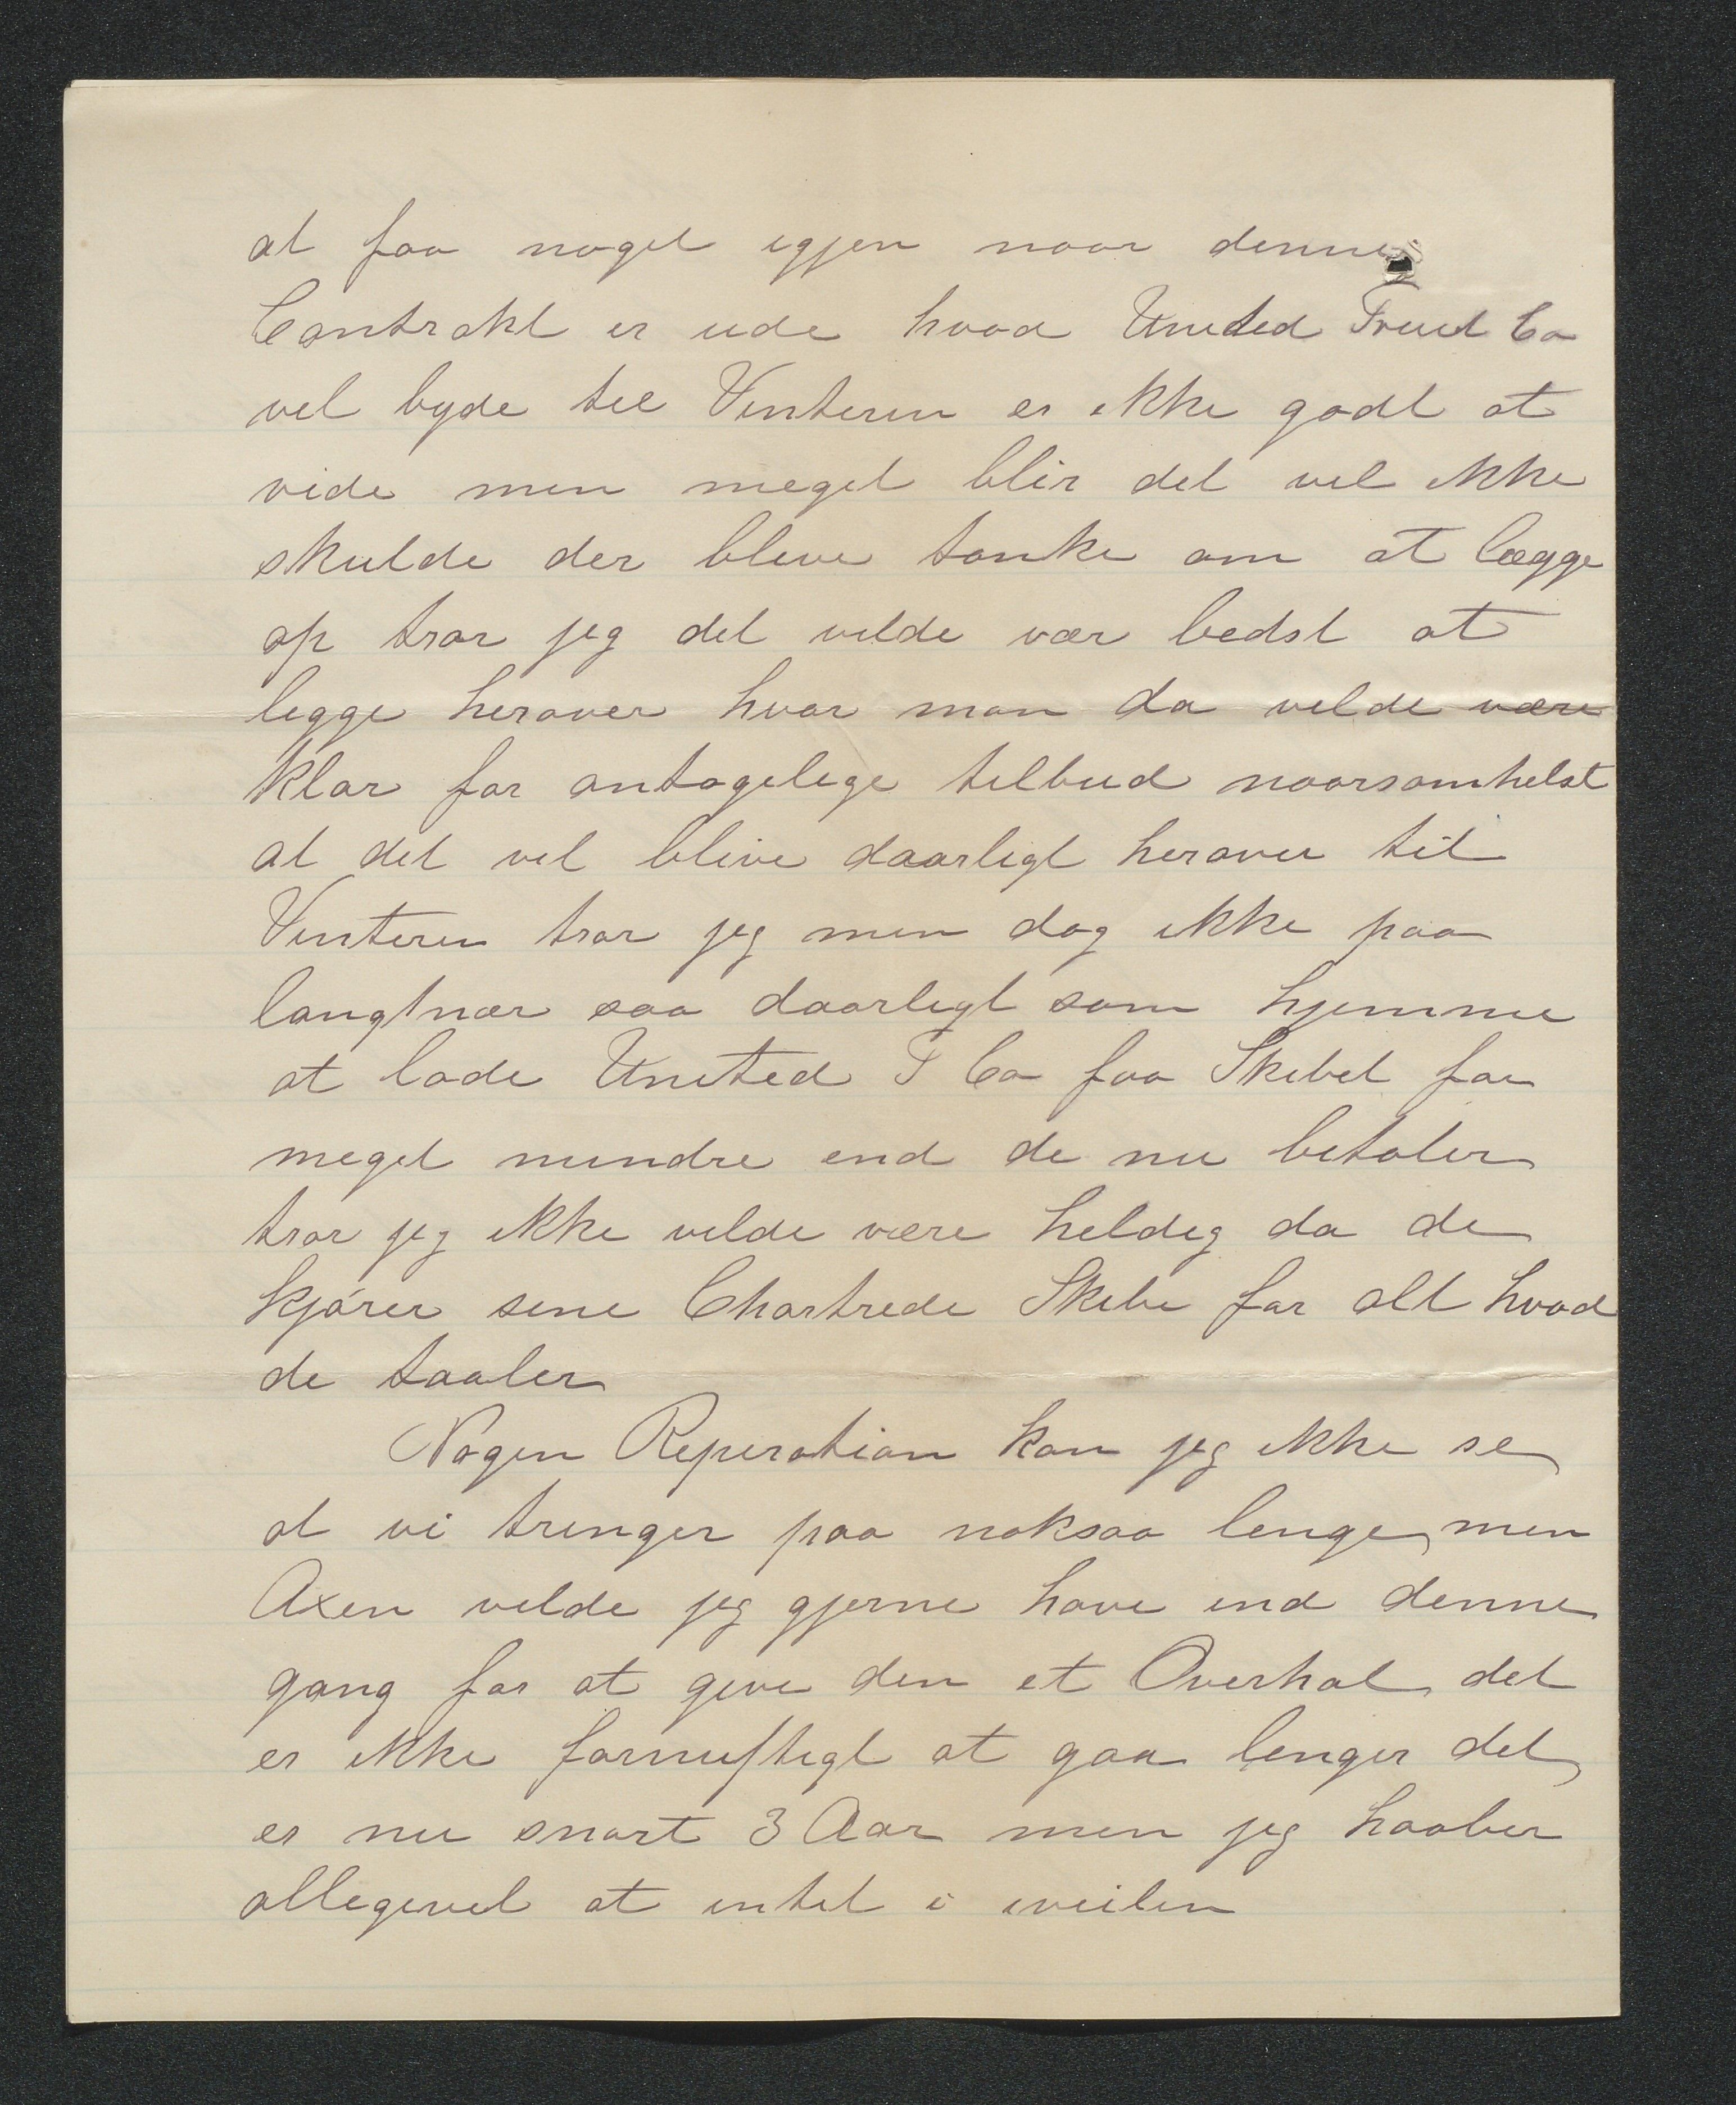 at faa noget igjen naar denne
Contrakt er ude hvad United Fruit Co
vil byde til Vinteren er ikke godt at
vide men meget blir det vel ikke
skulde der blive tanke om at lægge
op tror jeg det vilde vær bedst at
ligge herover hvor man da vilde være
klar for antagelige tilbud naarsomhelst
at det vil blive daarligt herover til
Vinteren tror jeg men dog ikke paa
langtnær saa daarligt som hjemme
at lade United F Co faa Skibet for
meget mindre end de nu betaler
tror jeg ikke vilde være heldig da de
kjører sine Chartrede Skibe for alt hvad
de taaler
Nogen Reperation kan jeg ikke se
at vi trenger paa noksaa lenge, men
Axen vilde jeg gjerne have ind denne
gang for at give den et Overhal, det
er ikke fornuftigt at gaa lenger det
er nu snart 3 Aar men jeg haaber
alligevel at intet i iveien